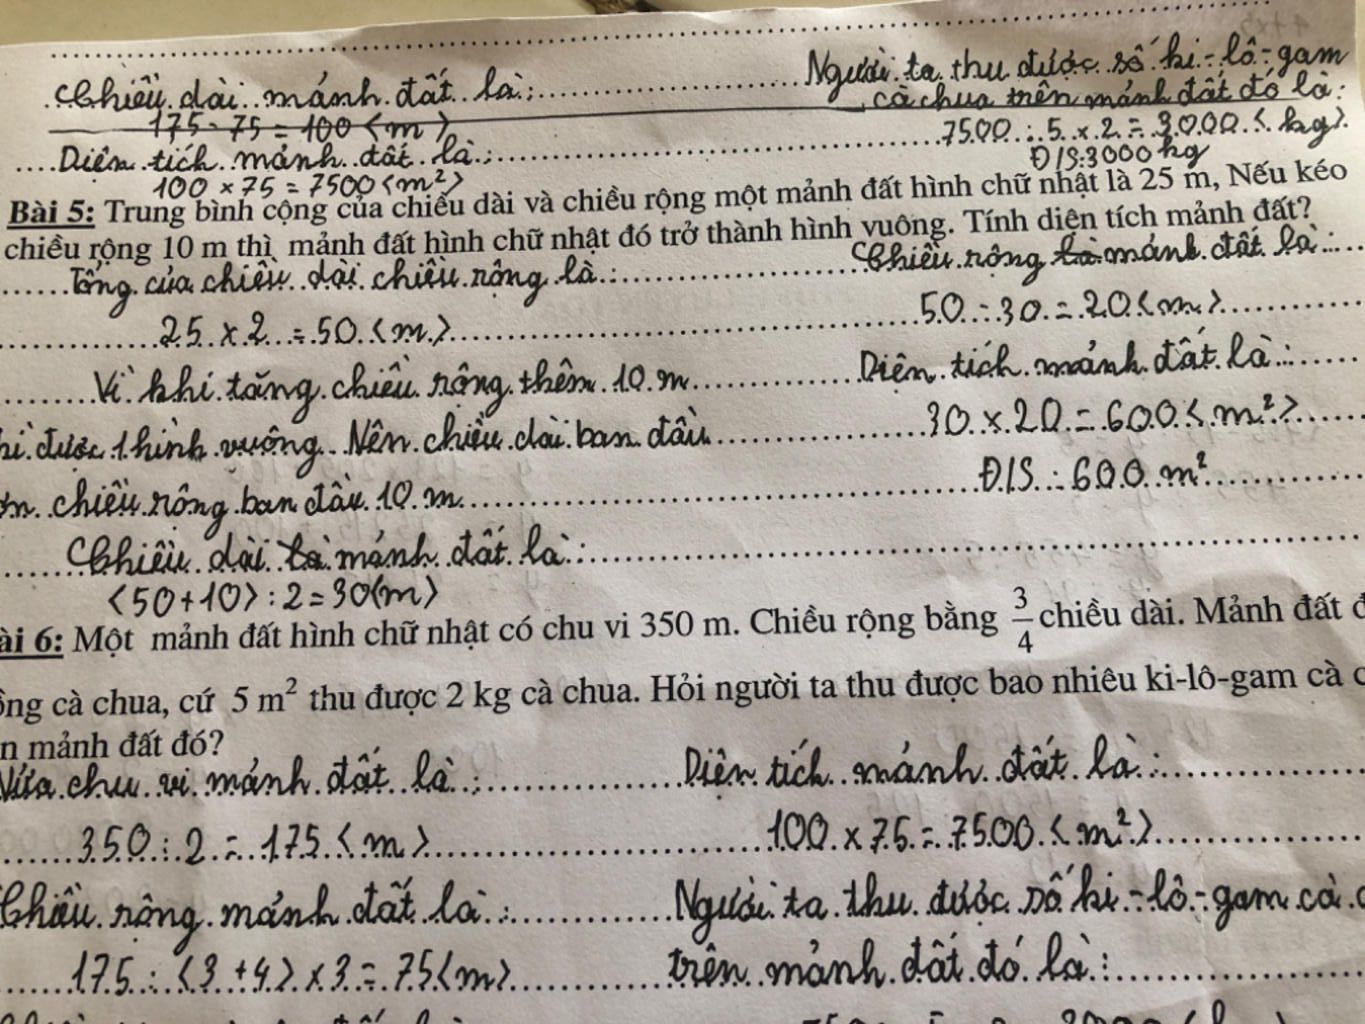 Chiều dài mảnh đất là:
175 - 75 = 100 <m>
Diện tích mảnh đất là:
100 x 75 = 7500 <m²>
Người ta thu được số ki-lô-gam
cà chua trên mảnh đất đó là:
7500 : 5 x 2 = 3000 < kg>
Đ/S: 3000 kg
Bài 5: Trung bình cộng của chiều dài và chiều rộng một mảnh đất hình chữ nhật là 25 m, Nếu kéo
chiều rộng 10 m thì mảnh đất hình chữ nhật đó trở thành hình vuông. Tính diện tích mảnh đất?
Tổng của chiều dài chiều rộng là:
25 x 2 = 50 <m>
Vì khi tăng chiều rộng thêm 10 m
hì được 1 hình vuông. Nên chiều dài ban đầu
ơn chiều rộng ban đầu 10 m
Chiều dài mảnh đất là:
<50 + 10> : 2 = 30 (m)
Chiều rộng mảnh đất là:
50 - 30 = 20 <m>
Diện tích mảnh đất là:
30 x 20 = 600 < m²>
Đ/S : 600 m²
ài 6: Một mảnh đất hình chữ nhật có chu vi 350 m. Chiều rộng bằng 3/4 chiều dài. Mảnh đất đ
ồng cà chua, cứ 5 m² thu được 2 kg cà chua. Hỏi người ta thu được bao nhiêu ki-lô-gam cà c
n mảnh đất đó?
Nửa chu vi mảnh đất là :
350 : 2 = 175 < m >
Chiều rộng mảnh đất là :
175 : <3 + 4> x 3 = 75 <m>
Diện tích mảnh đất là :
100 x 75 = 7500 < m²>
Người ta thu được số ki-lô-gam cà c
trên mảnh đất đó là :